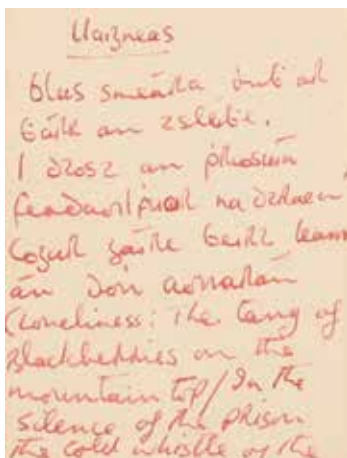 Uaigneas
blas sméara dub ar
bárr an tsléibe.
I dtost an phríosúin
fuar na dtraen
Cogar gáire beirt leann
án don aonarán
(Loneliness: The tang of
Blackberries on the
mountain top/In the
silence of the prison
the cold whistle of the